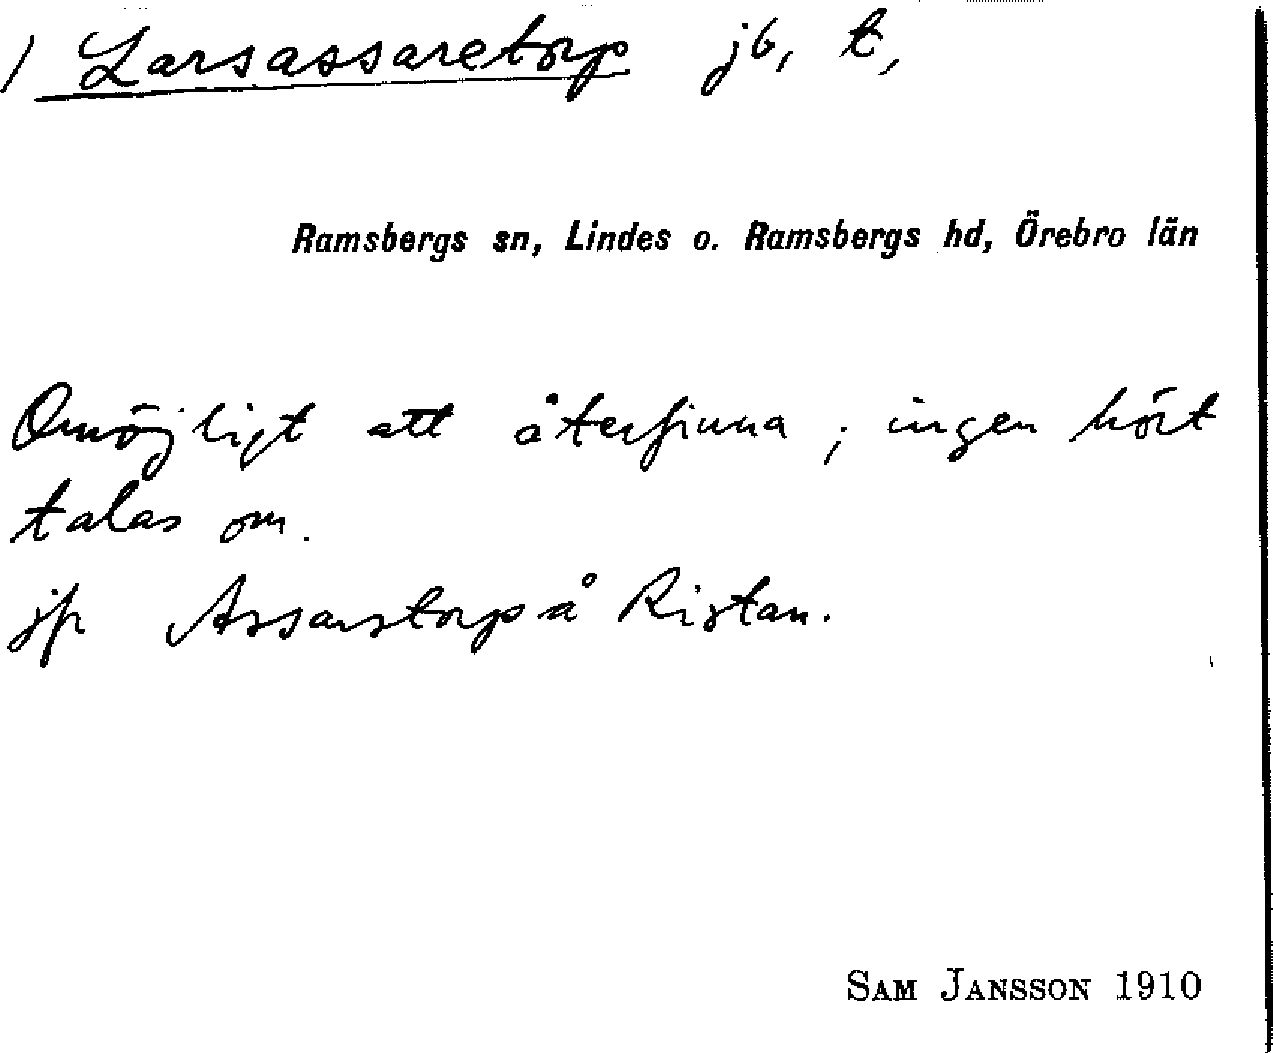 ) Larsassaretorp jb, t,
Ramsbergs sn, Lindes o. Ramsbergs hd, Örebro län
Omöjligt att återfinna ; ingen hört
talas om.
jfr Assarstorp å Ristan.
SAM JANSSON 1910